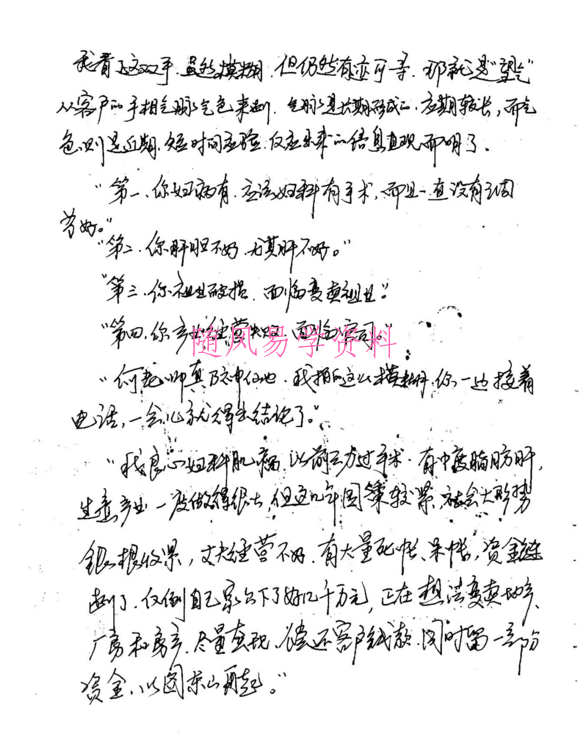 我看了这双手，虽然模糊，但仍然有迹可寻，那就是"望气"
从客户的手相色脉气色来判，色脉是长期形成的，应期较长，而气
色则是近期、短时间应验，反应出来的信息直观而明了。
"第一、你妇病有，应该妇科有手术，而且一直没有调
养好。"
"第二、你肝胆不好，尤其肝不好。"
"第三、你祖业破损，面临变卖祖业。"
"第四、你产业经营失败，面临官司。"
随风易学资料
"何老师真乃神仙也，我拍的这么模糊，你一边接着
电话，一会儿就得出结论了。"
"我是心妇科肌病，以前动过手术，有中度脂肪肝，
生意产业一度做得很大，但这几年国策较紧，社会大形势
银根收紧，丈夫经营不好，有大量死帐、呆帐，资金链
断了，仅倒自己家公下了好几千万元，正在想法变卖地产、
厂房和房产，尽量变现，偿还客户钱款，同时留一部份
资金，以图东山再起。"